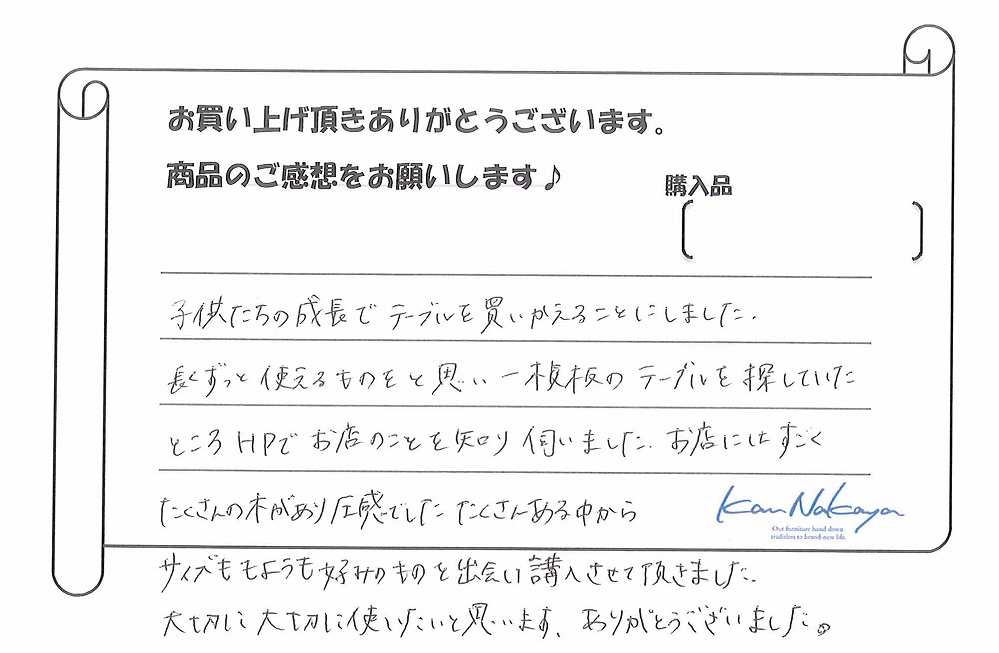 お買い上げ頂きありがとうございます。
商品のご感想をお願いします♪
購入品
子供たちの成長でテーブルを買いかえることにしました.
長くずっと使えるものをと思い一枚板のテーブルを探していた
ところHPでお店のことを知り伺いました. お店にはすごく
たくさんの木があり圧感でした たくさんある中から
Kan Nakaya
Our furniture hand down
tradition to brand-new life.
サイズももようも好みのものと出会い購入させて頂きました.
大切に大切に使いたいと思います、ありがとうございました。